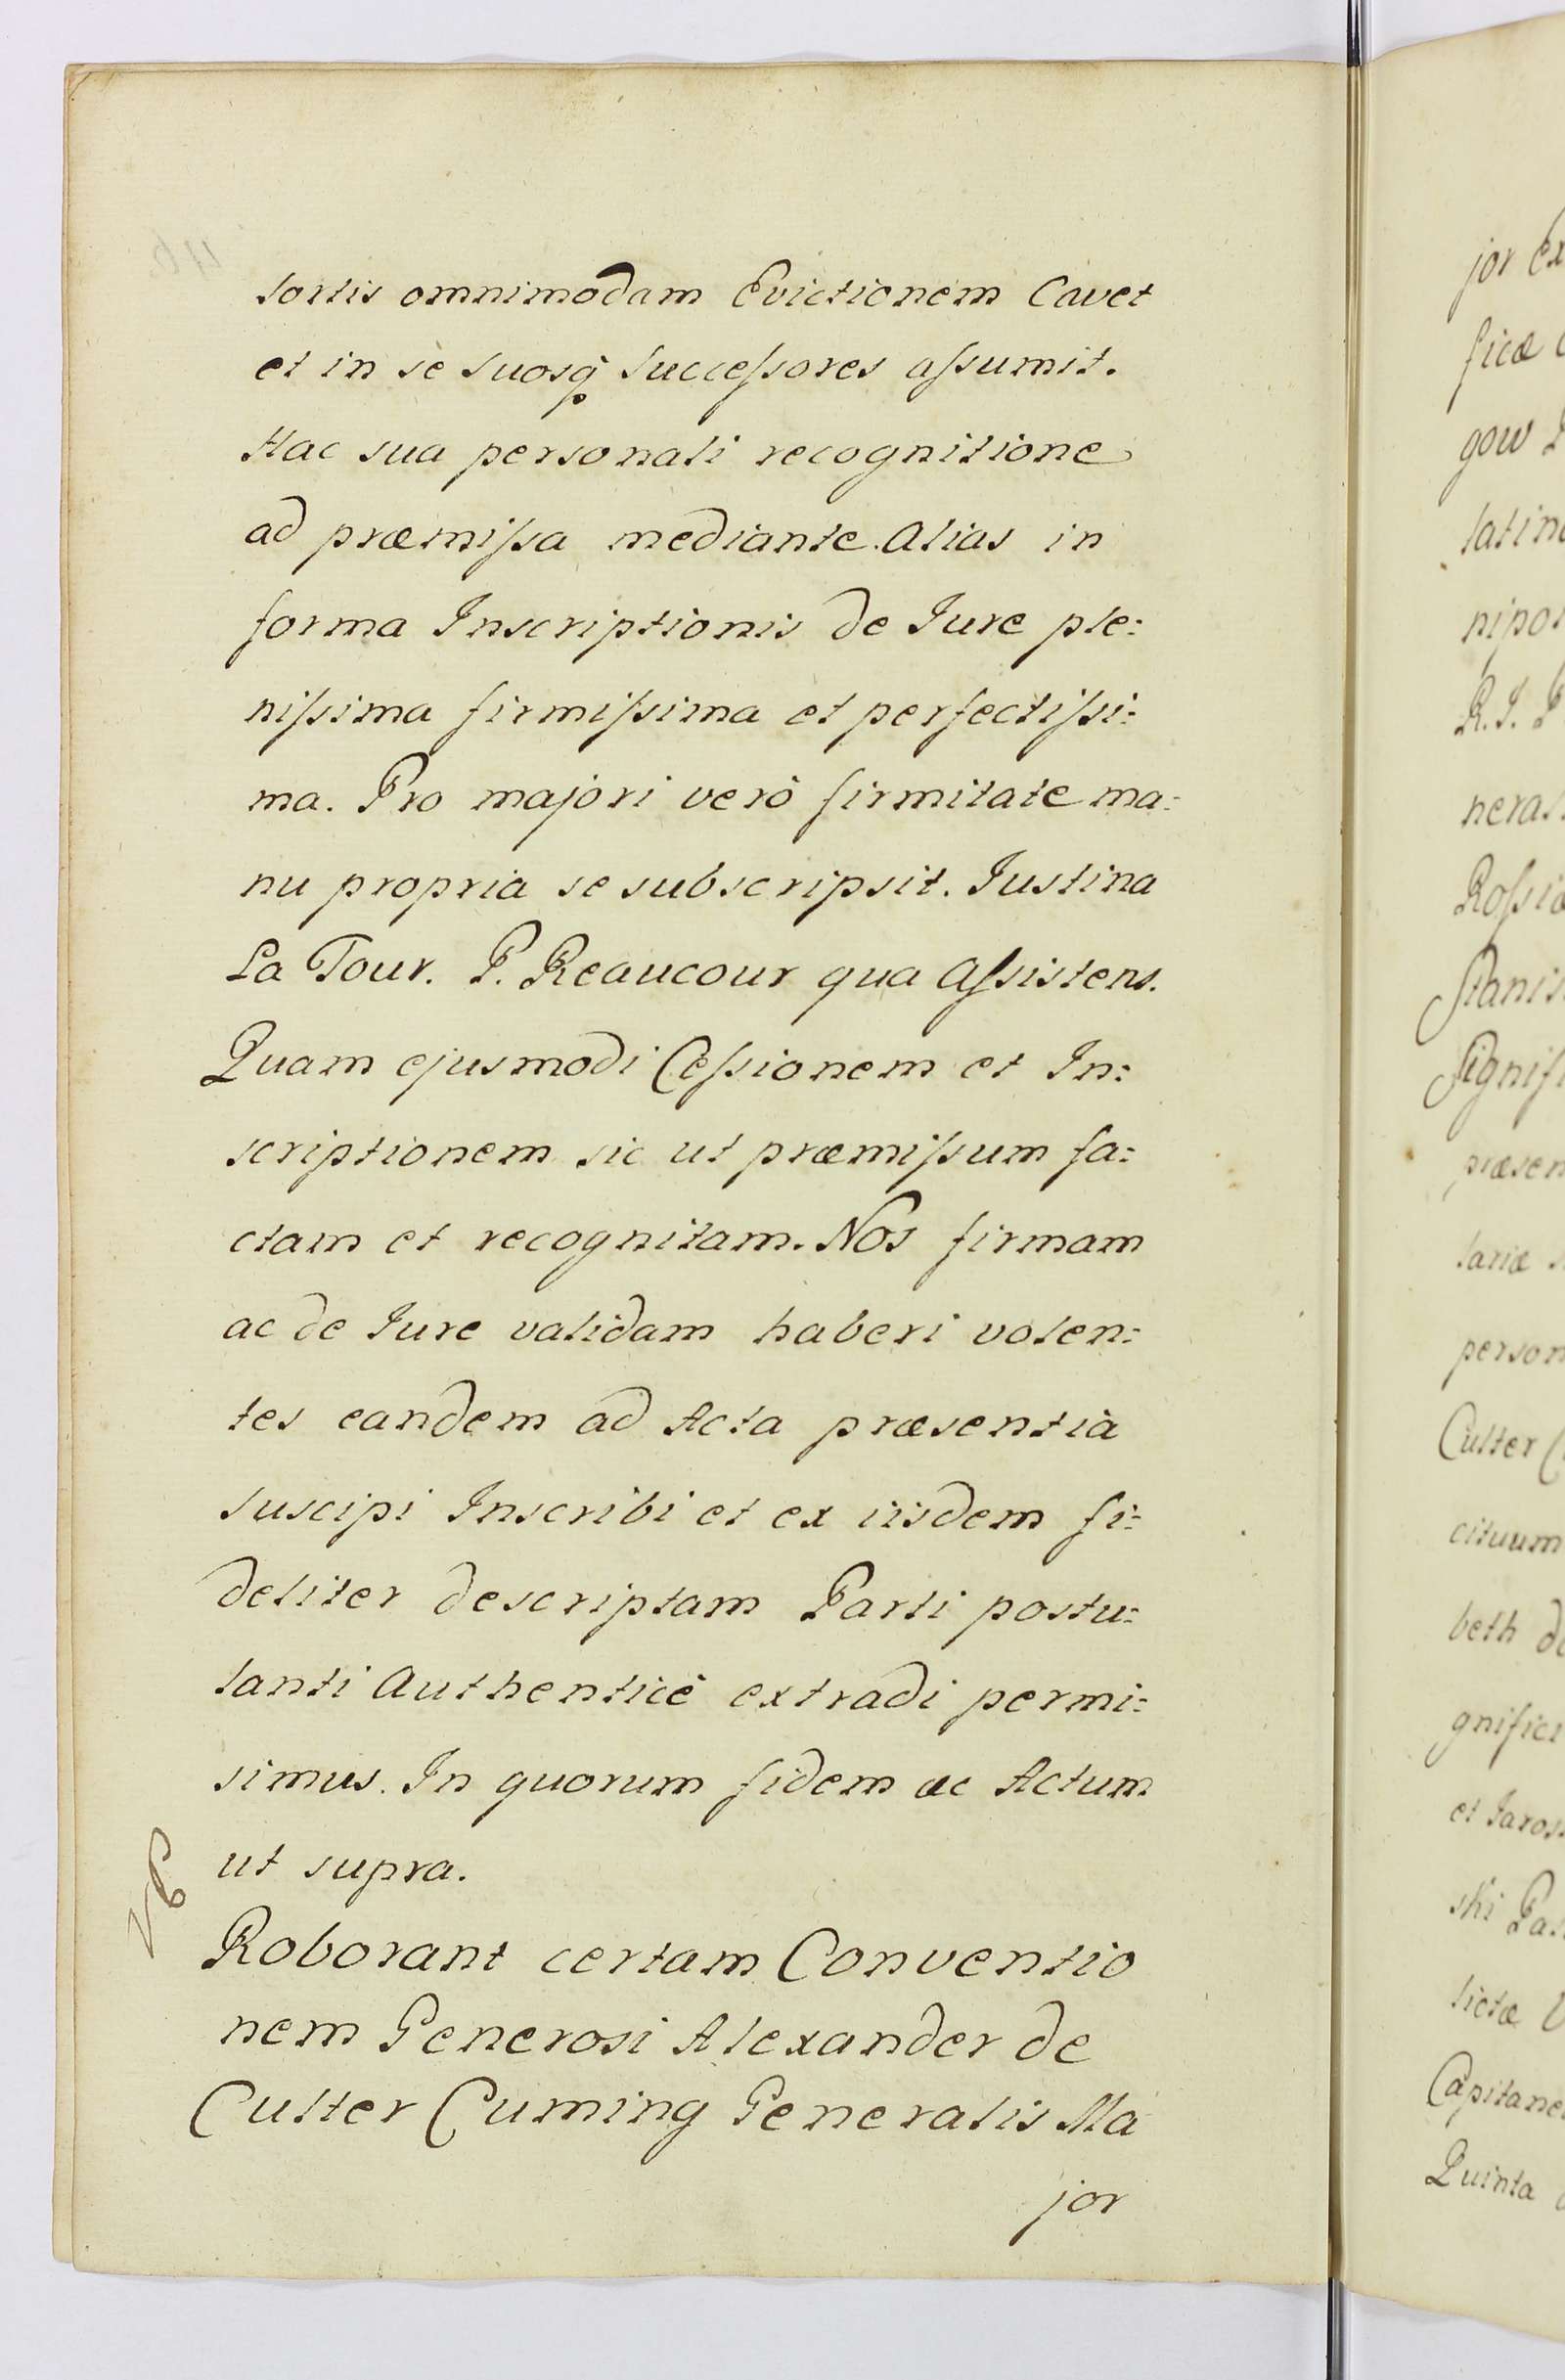 sortis omnimodam Evictionem Cavet
et in se suosq̃ Successores assumit.
Hac sua personali recognitione
ad præmissa mediante. Alias in
forma Inscriptionis de Jure ple:
nissima firmissima et perfectissi:
ma. Pro majori verò firmitate ma:
nu propria se subscripsit. Justina
La Tour. P. Reaucour qua Assistens.
Quam ejusmodi Cessionem et In:
scriptionem sic ut præmissum fa:
ctam et recognitam. Nos firmam
ac de Jure validam haberi volen:
tes eandem ad Acta præsentia
suscipi Inscribi et ex iisdem fi:
deliter descriptam Parti postu:
lanti Authenticè extradi permi:
simus. In quorum fidem ac Actum
ut supra.
Roborant certam Conventio
nem Generosi Alexander de
Culter Cuming Generalis Ma
jor
jor Ex
ficæ
gow
latin
nipo
R. I. P
neral
Rossiæ
Stanis
Signifi
præsen
lariæ
person
Culter C
cituum
beth de
gnifici
et Jaros
ski Pa
lictæ
Capitane
Quinta